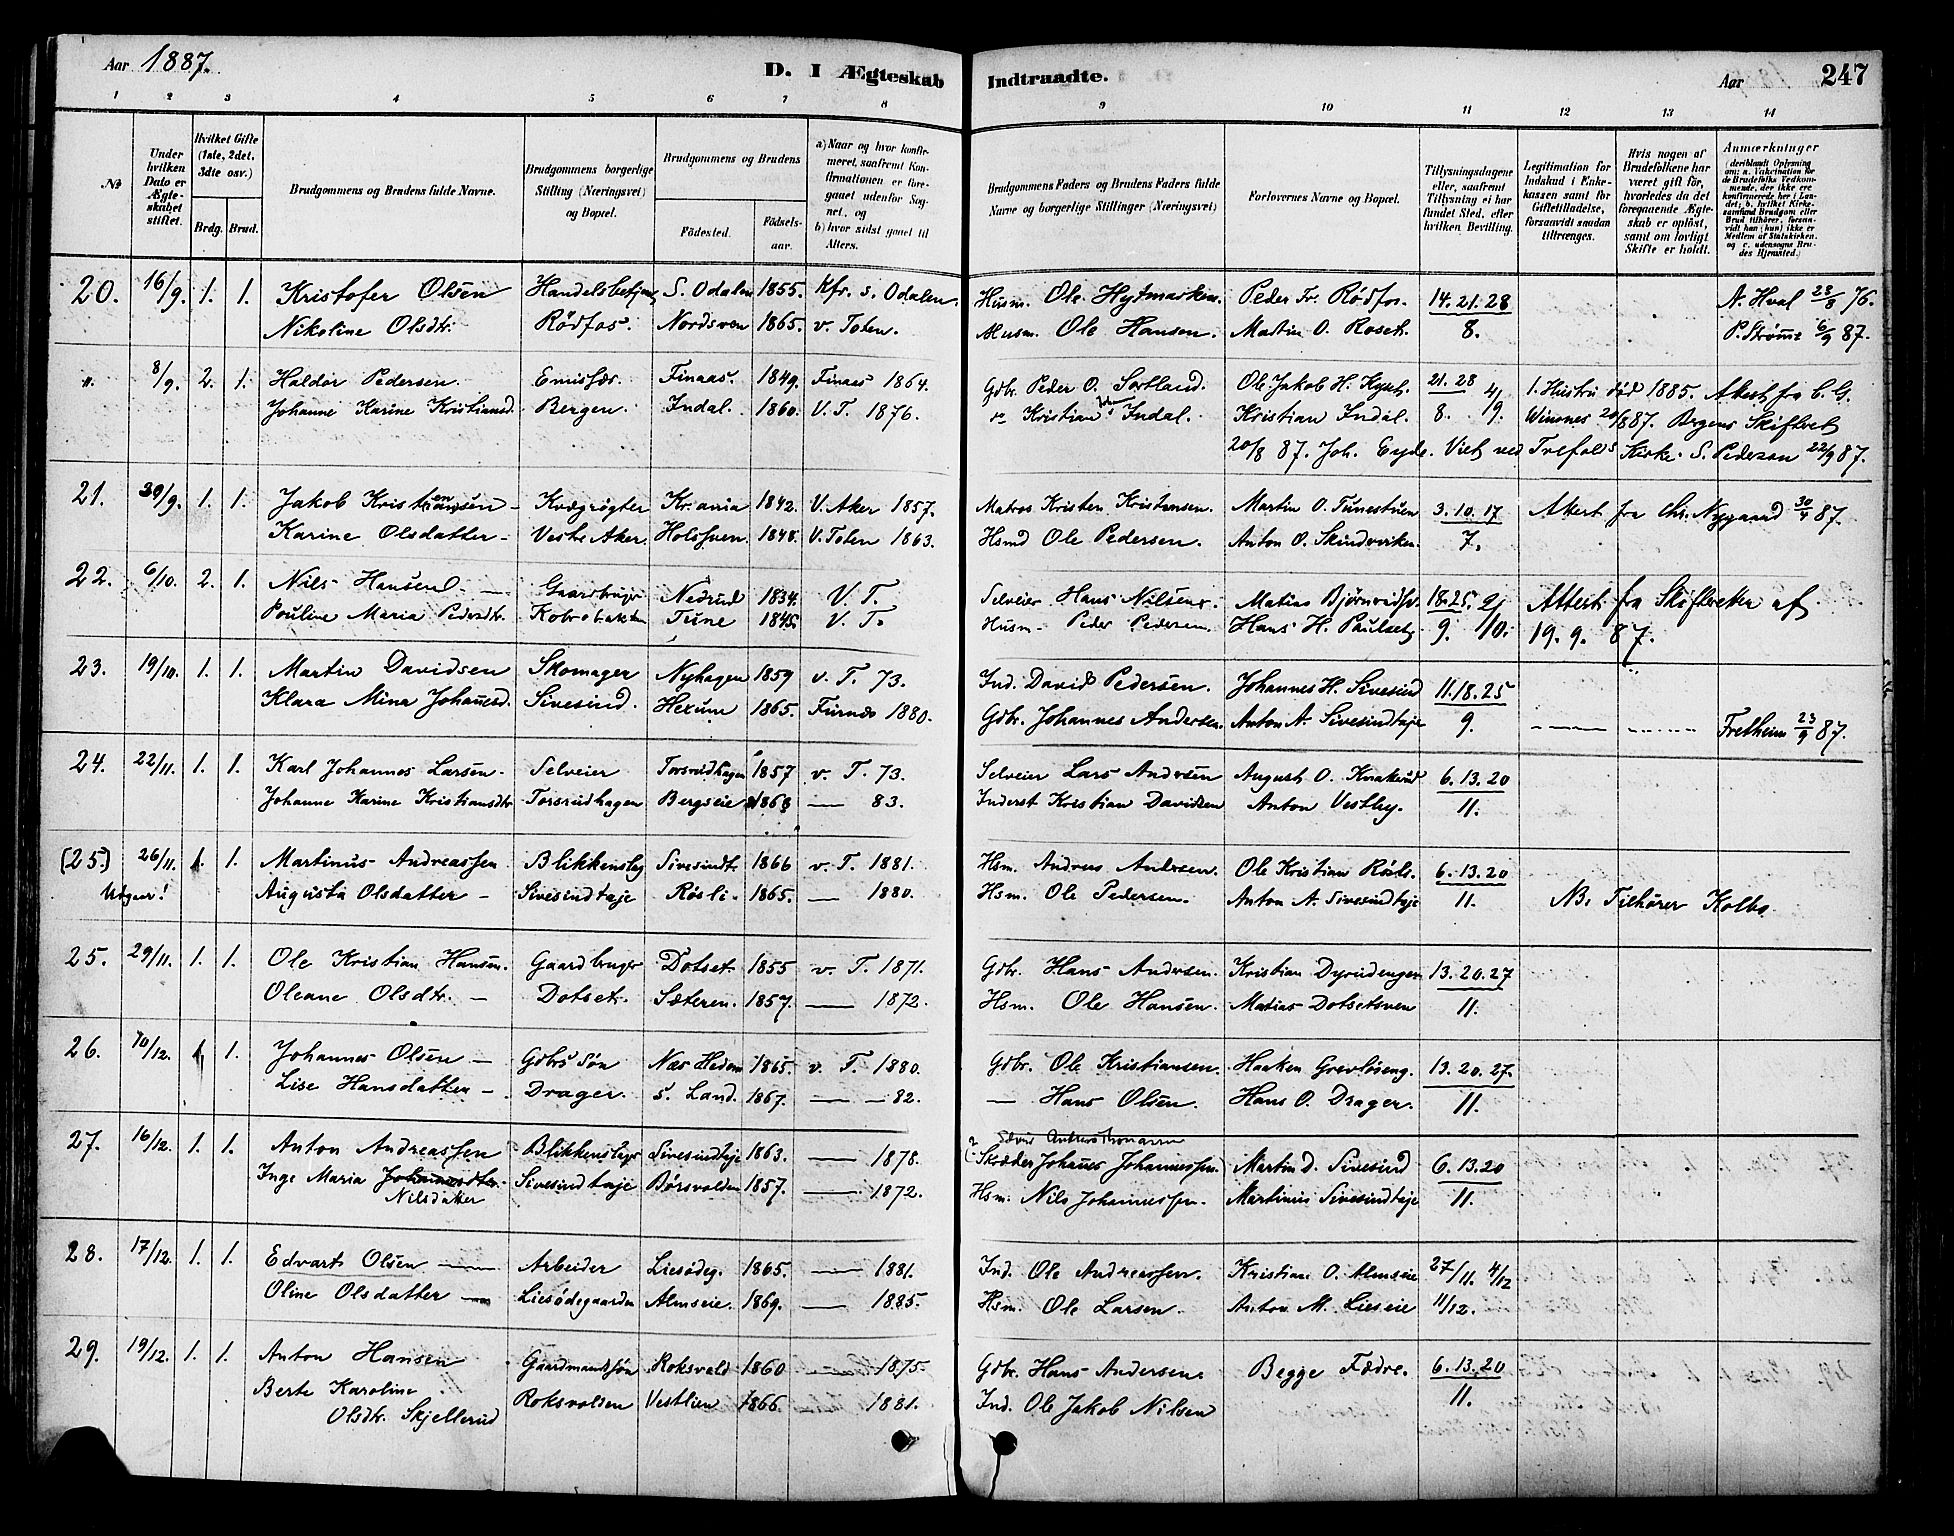 Aar 1887.
D. I Ægteskab Indtraadte.
Aar
247
1 2 3 4 5 6 7 8 9 10 11 12 13 14
№
Under hvilken Dato er Ægteskabet stiftet.
Hvilket Gifte (1ste, 2det, 3dte osv.)
Brdg. Brud.
Brudgommens og Brudens fulde Navne.
Brudgommens borgerlige Stilling (Næringsvei) og Bopæl.
Brudgommens og Brudens
Fødested. Fødselsaar.
a) Naar og hvor konfirmeret, saafremt Konfirmationen er foregaaet udenfor Sognet, og
b) hvor sidst gaaet til Alters.
Brudgommens Faders og Brudens Faders fulde Navne og borgerlige Stillinger (Næringsvei)
Forlovernes Navne og Bopæl.
Tillysningsdagene eller, saafremt Tillysning ei har fundet Sted, efter hvilken Bevilling.
Legitimation for Indskud i Enkekassen samt for Giftetilladelse, forsaavidt saadan tiltrænges.
Hvis nogen af Brudefolkene har været gift før, hvorledes da det foregaaende Ægteskab er opløst, samt om lovligt Skifte er holdt.
Anmærkninger (deriblandt Oplysning om: a. Vakcination for de Brudefolks Vedkommende, der ikke ere konfirmerede her i Landet; b. hvilket Kirkesamfund Brudgom eller Brud tilhører, forsaavidt han (hun) ikke er Medlem af Statskirken, og c. udensogns Brudes Hjemsted.)
20. 16/9. 1. 1. Kristofer Olsen Handelsbetjent S. Odalen 1855. Kfr. S. Odalen. Husm. Ole Hytmarken. Peder Fr. Rødfos. 14. 21. 28 A. Hval 23/8 76.
Nikoline Olsdtr. Rødfos. Nordsven 1865. v. Toten. Husm. Ole Hansen. Martin O. Roset. 8. P. Strøm 6/9 87.
". 8/9. 2. 1. Haldor Pedersen. Emisfær. Finaas. 1849. Finaas 1864. Gdbr. Peder O. Sortland. Ole Jakob H. 21. 28 4/9 1. Hustru død 1885. Attest fra C. G.
Johanne Karine Kristiansd. Bergen. Indal. 1860. V. T. 1876. Kristian Indal. Kristian Indal. 8. Winsnes 20/8 87. Bergens Skifteret
20/8 87. Joh. Eyde. Viet ved Trefolds Kirke. S. Pedersen 22/9 87.
21. 30/9. 1. 1. Jakob Kristiansen - Kvægrøgter Kr.ania 1842. V. Aker 1857. Matros Kristen Kristensen. Martin O. Tunestuen 3. 10. 17 Attest fra Chr. Nygaard 30/4 87.
Karine Olsdatter - Vestre Aker. Holssven. 1848. V. Toten 1863. Hsmd Ole Pedersen. Anton O. Skindverken. 7.
22. 6/10. 2. 1. Nils Hansen - Gaardbruger Nedrud 1834. V. T. Selveier Hans Nilsen. Matias Bjørnerud 18. 25. 2/10. Attest fra Skifteretten af
Pouline Maria Pedersdtr. Tune 1845. V. T. Husm. Peder Pedersen. Hans H. Paulset. 9. 19. 9. 87.
23. 19/10. 1. 1. Martin Davidsen Skomager Nyhagen 1859 v. T. 73. Ind. David Pedersen. Johannes H. Sivesind 11. 18. 25
Klara Mina Johannesd. Sivesind. Hexum 1865. Furnes 1880. Gdbr. Johannes Andersen. Anton A. Sivesindteje 9. Fretheim 23/9 87.
24. 22/11. 1. 1. Karl Johannes Larsen. Selveier Torsrudhagen 1857 v. T. 73. Selveier Lars Andersen August O. Knakerud 6. 13. 20
Johanne Karine Kristiansdtr. Torsrudhagen Bergseie 1868 — 83. Inderst Kristian Davidsen Anton Vestby. 11.
(25.) 26/11. 1. 1. Martinus Andreassen Blikkenslag Sivesindt. 1866 v. T. 1881. Hsm. Andreas Andersen. Ole Kristian Røste. 6. 13. 20
Udgaar! Augusta Olsdatter - Sivesindteje Røsli. 1865. — 1880. Hsm. Ole Pedersen. Anton A. Sivesindteje 11. NB. Tilhører Kolbo.
25. 29/11. 1. 1. Ole Kristian Hansen. Gaardbruger Dotset. 1855 v. T. 1871. Gdbr. Hans Andersen. Kristian Dyrudengen 13. 20. 27
Oleane Olsdtr. - Dotset. Sæteren. 1857. — 1872. Hsm. Ole Hansen. Matias Dotsetsven 11.
26. 10/12. 1. 1. Johannes Olsen - Gdbrs Søn Næs Hedem 1865. v. T. 1880. Gdbr. Ole Kristiansen. Haaken Grevløseng. 13. 20. 27.
Lise Hansdatter -. Drager. S. Land. 1867. — 82. — Hans Olsen. Hans O. Drager. 11.
27. 16/12. 1. 1. Anton Andreassen Blikkenslagr Sivesindteje 1863. — 1878. Skræder Johannes Johannessen. Martin D. Sivesind 6. 13. 20
Inge Maria Johannesdtr. Nilsdatter Sivesindteje Børsvolden 1857. — 1872. Hsm. Nils Johannessen. Martinus Sivesindteje 11.
28. 17/12. 1. 1. Edvart Olsen — Arbeider Liesødeg. 1865. — 1881. Ind. Ole Andreassen. Kristian O. Almseie 27/11. 4/12
Oline Olsdatter — Liesødegaarden Almseie. 1869. — 1885. Hsm. Ole Larsen. Anton M. Lieseie 11/12.
29. 19/12. 1. 1. Anton Hansen Gaardmandssøn Roksvold 1860 — 1875. Gdbr. Hans Andersen. Begge Fædre. 6. 13. 20
Berte Karoline Olsdtr. Skjellerud Roksvolden Vestlien 1866. — 1881. Ind. Ole Jakob Nilsen 11.